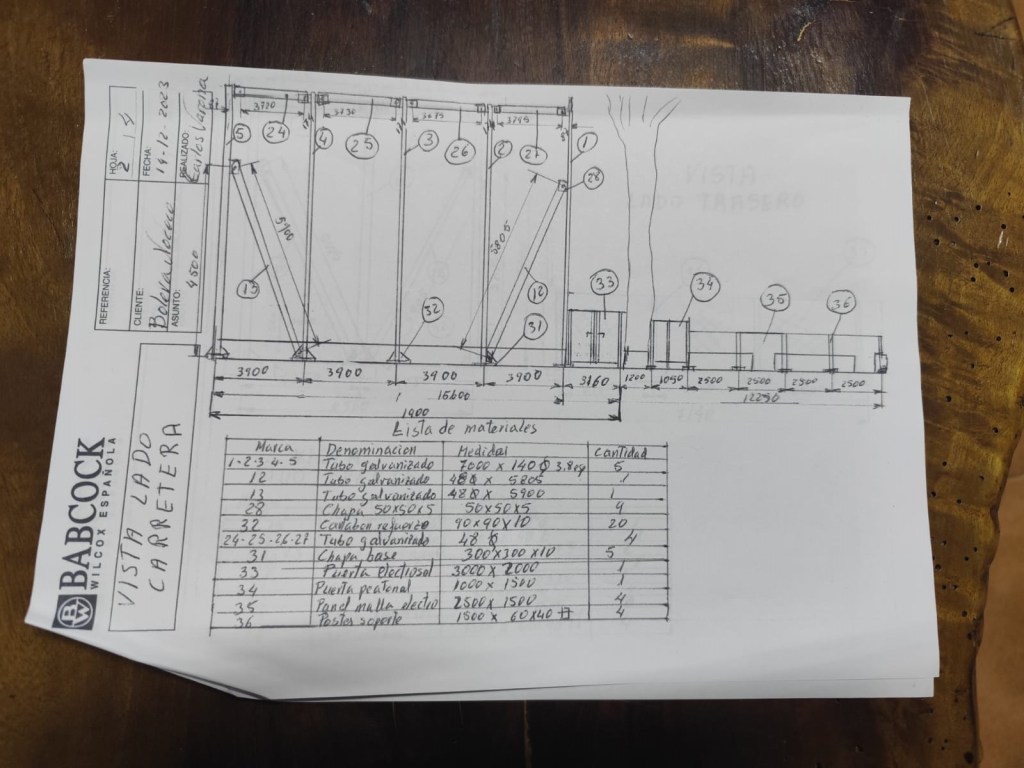 HOJA:
2 | 4
FECHA:
14-12-2023
REALIZADO:
Carlos Varona
REFERENCIA:
CLIENTE:
ASUNTO:
4500
BABCOCK
WILCOX ESPAÑOLA
VISTA LADO
CARRETERA
3720
3730
3675
3745
5
24
4
25
3
26
2
27
1
28
5900
5805
13
32
12
31
33
34
35
36
3900
3900
3900
3900
3160
1200
1050
2500
2500
2500
2500
15600
12250
1900
Lista de materiales
Marca Denominacion Medidas Cantidad
1-2-3 4-5 Tubo galvanizado 7000 x 140 ϕ 3,8 eg 5
12 Tubo galvanizado 48 ϕ x 5805 1
13 Tubo galvanizado 48 ϕ x 5900 1
28 Chapa 50x50x5 50x50x5 4
32 Cartabon refuerzo 90x90x10 20
24-25-26-27 Tubo galvanizado 48 ϕ 4
31 Chapa base 300x300x10 5
33 Puerta electrosol 3000 x 2000 1
34 Puerta peatonal 1000 x 1500 1
35 Panel malla electro 2500x 1500 4
36 Postes soporte 1500 x 60x40 4